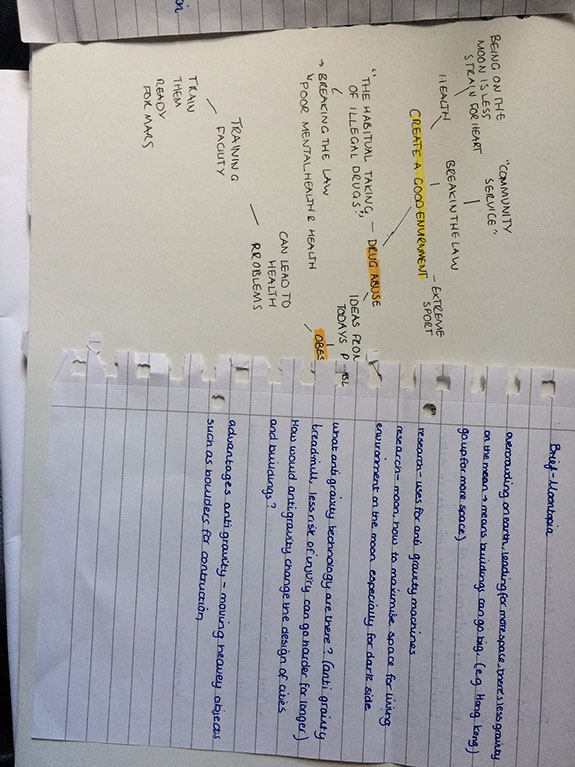 BEING ON THE
MOON IS LESS
STRAIN FOR HEART
HEALTH
"COMMUNITY
SERVICE"
BREAKIN THE LAW
EXTREME
SPORT
CREATE A GOOD ENVIRNMENT
DRUG ABUSE
"THE HABITUAL TAKING
OF ILLEGAL DRUGS"
→ BREAKING THE LAW
"POOR MENTAL HEALTH & HEALTH
IDEAS FROM
TODAYS P
OBES
CAN LEAD TO
HEALTH
PROBLEMS
TRAINING
FACILITY
TRAIN
THEM
READY
FOR MARS
Brief - Moontopia
overcrowding on earth, leading for more space, there's less gravity
on the mean → means buildings can go big. (e.g Hong Kong)
go up for more space)
research - uses for anti gravity machines
research - moon, how to maximise space for living
environment on the moon especially for dark side
what anti gravity technology are there? (anti gravity
treadmill, less risk of injury can go harder for longer)
How would antigravity change the design of cities
and buildings?
advantages anti gravity - moving heavey objects
such as boulders for contruction